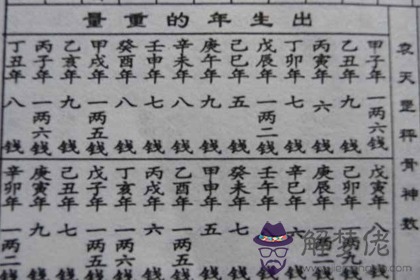 出生年的重量
袁天罡秤骨神數
甲子年 一两六錢
乙丑年 九錢
丙寅年 六錢
丁卯年 七錢
戊辰年 一两二錢
己巳年 五錢
庚午年 九錢
辛未年 八錢
壬申年 七錢
癸酉年 八錢
甲戌年 一两五錢
乙亥年 九錢
丙子年 一两六錢
丁丑年 八錢
戊寅年
己卯年
庚辰年
辛巳年 六
壬午年 八
癸未年 七
甲申年 五
乙酉年 一两五
丙戌年 六
丁亥年 一两六
戊子年 一两五
己丑年 七
庚寅年 九
辛卯年 一两二